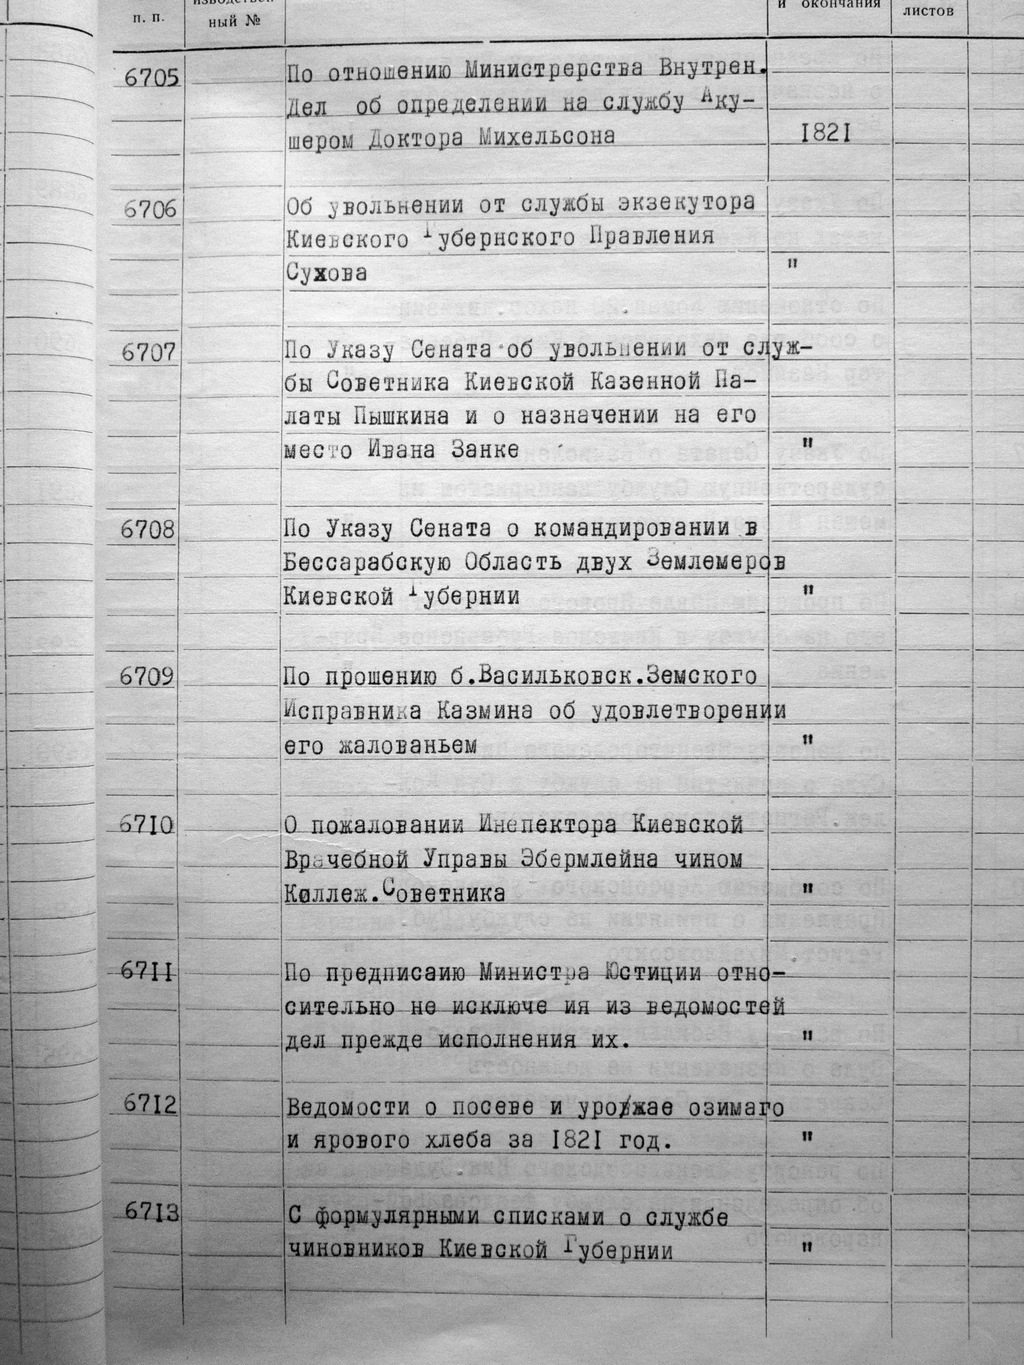 п. п.
ный №
и окончания
листов
6705
По отношению Министрерства Внутрен.
Дел об определении на службу Аку-
шером Доктора Михельсона 1821
6706
Об увольнении от службы экзекутора
Киевского Губернского Правления
Сухова "
6707
По Указу Сената об увольнении от служ-
бы Советника Киевской Казенной Па-
латы Пышкина и о назначении на его
место Ивана Занке "
6708
По Указу Сената о командировании в
Бессарабскую Область двух Землемеров
Киевской Губернии "
6709
По прошению б.Васильковск.Земского
Исправника Казмина об удовлетворении
его жалованьем "
6710
О пожаловании Инепектора Киевской
Врачебной Управы Эбермлейна чином
Коллеж.Советника "
6711
По предписаию Министра Юстиции отно-
сительно не исключе ия из ведомостей
дел прежде исполнения их. "
6712
Ведомости о посеве и урожае озимаго
и ярового хлеба за 1821 год. "
6713
С формулярными списками о службе
чиновников Киевской Губернии "